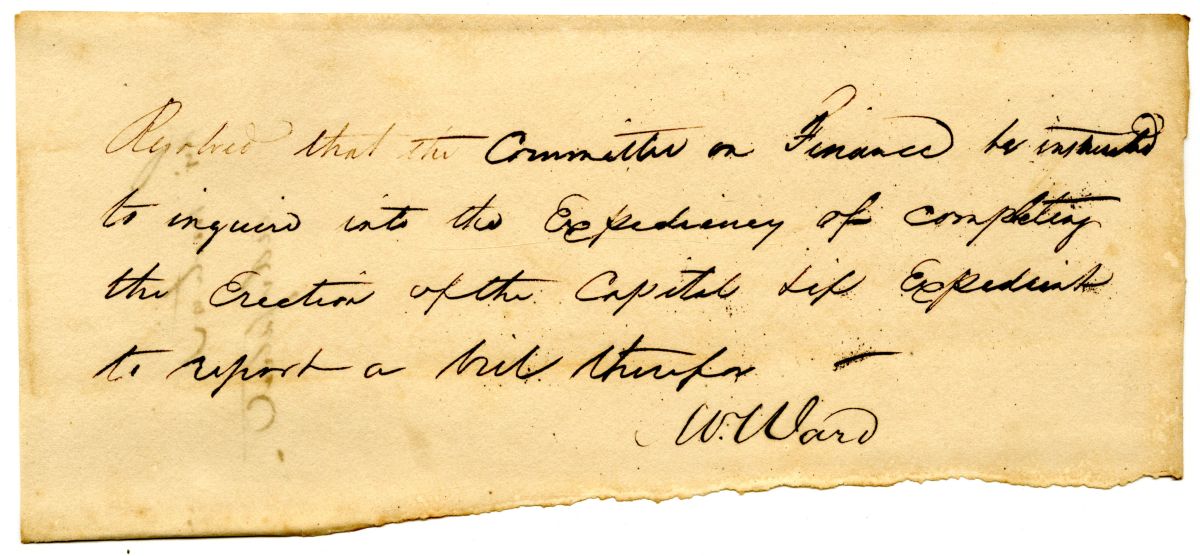 Resolved that the Committee on Finance be instructed
to inquire into the Expediency of completing
the Erection of the Capital & if Expedient
to report a bill therefor —
W. Ward